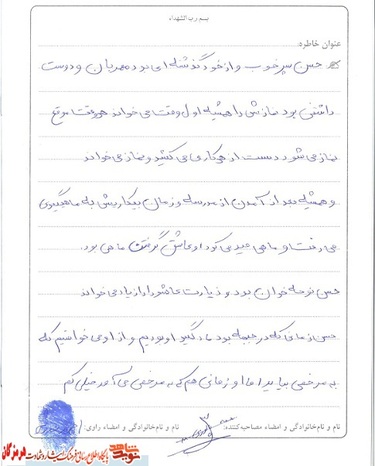 بسم رب الشهداء
عنوان خاطره:
حسن پسر خوب و از خود گذشته ای بود مهربان و دوست
داشتنی بود نمازش را همیشه اول وقت می خواند هر وقت موقع
نماز می شود دست از هر کاری می کشید و نماز می خواند
و همیشه بعد از آمدن از مدرسه و زمان بیکاریش به ماهیگیری
می رفت و ماهی صید می کرد او عاشق گرفتن ماهی بود.
حسن نوحه خوان بود و زیارت عاشورا زیاد می خواند
حسن زمانی که در جبهه بود ما دلگیر او بودیم و از او می خواستیم که
به مرخصی بیاید اما او زمانی هم که به مرخصی می آمد خیلی کم
نام و نام خانوادگی و امضاء مصاحبه کننده:
نام و نام خانوادگی و امضاء راوی:
نوید شاهد
پایگاه اطلاع رسانی فرهنگ ایثار و شهادت هرمزگان